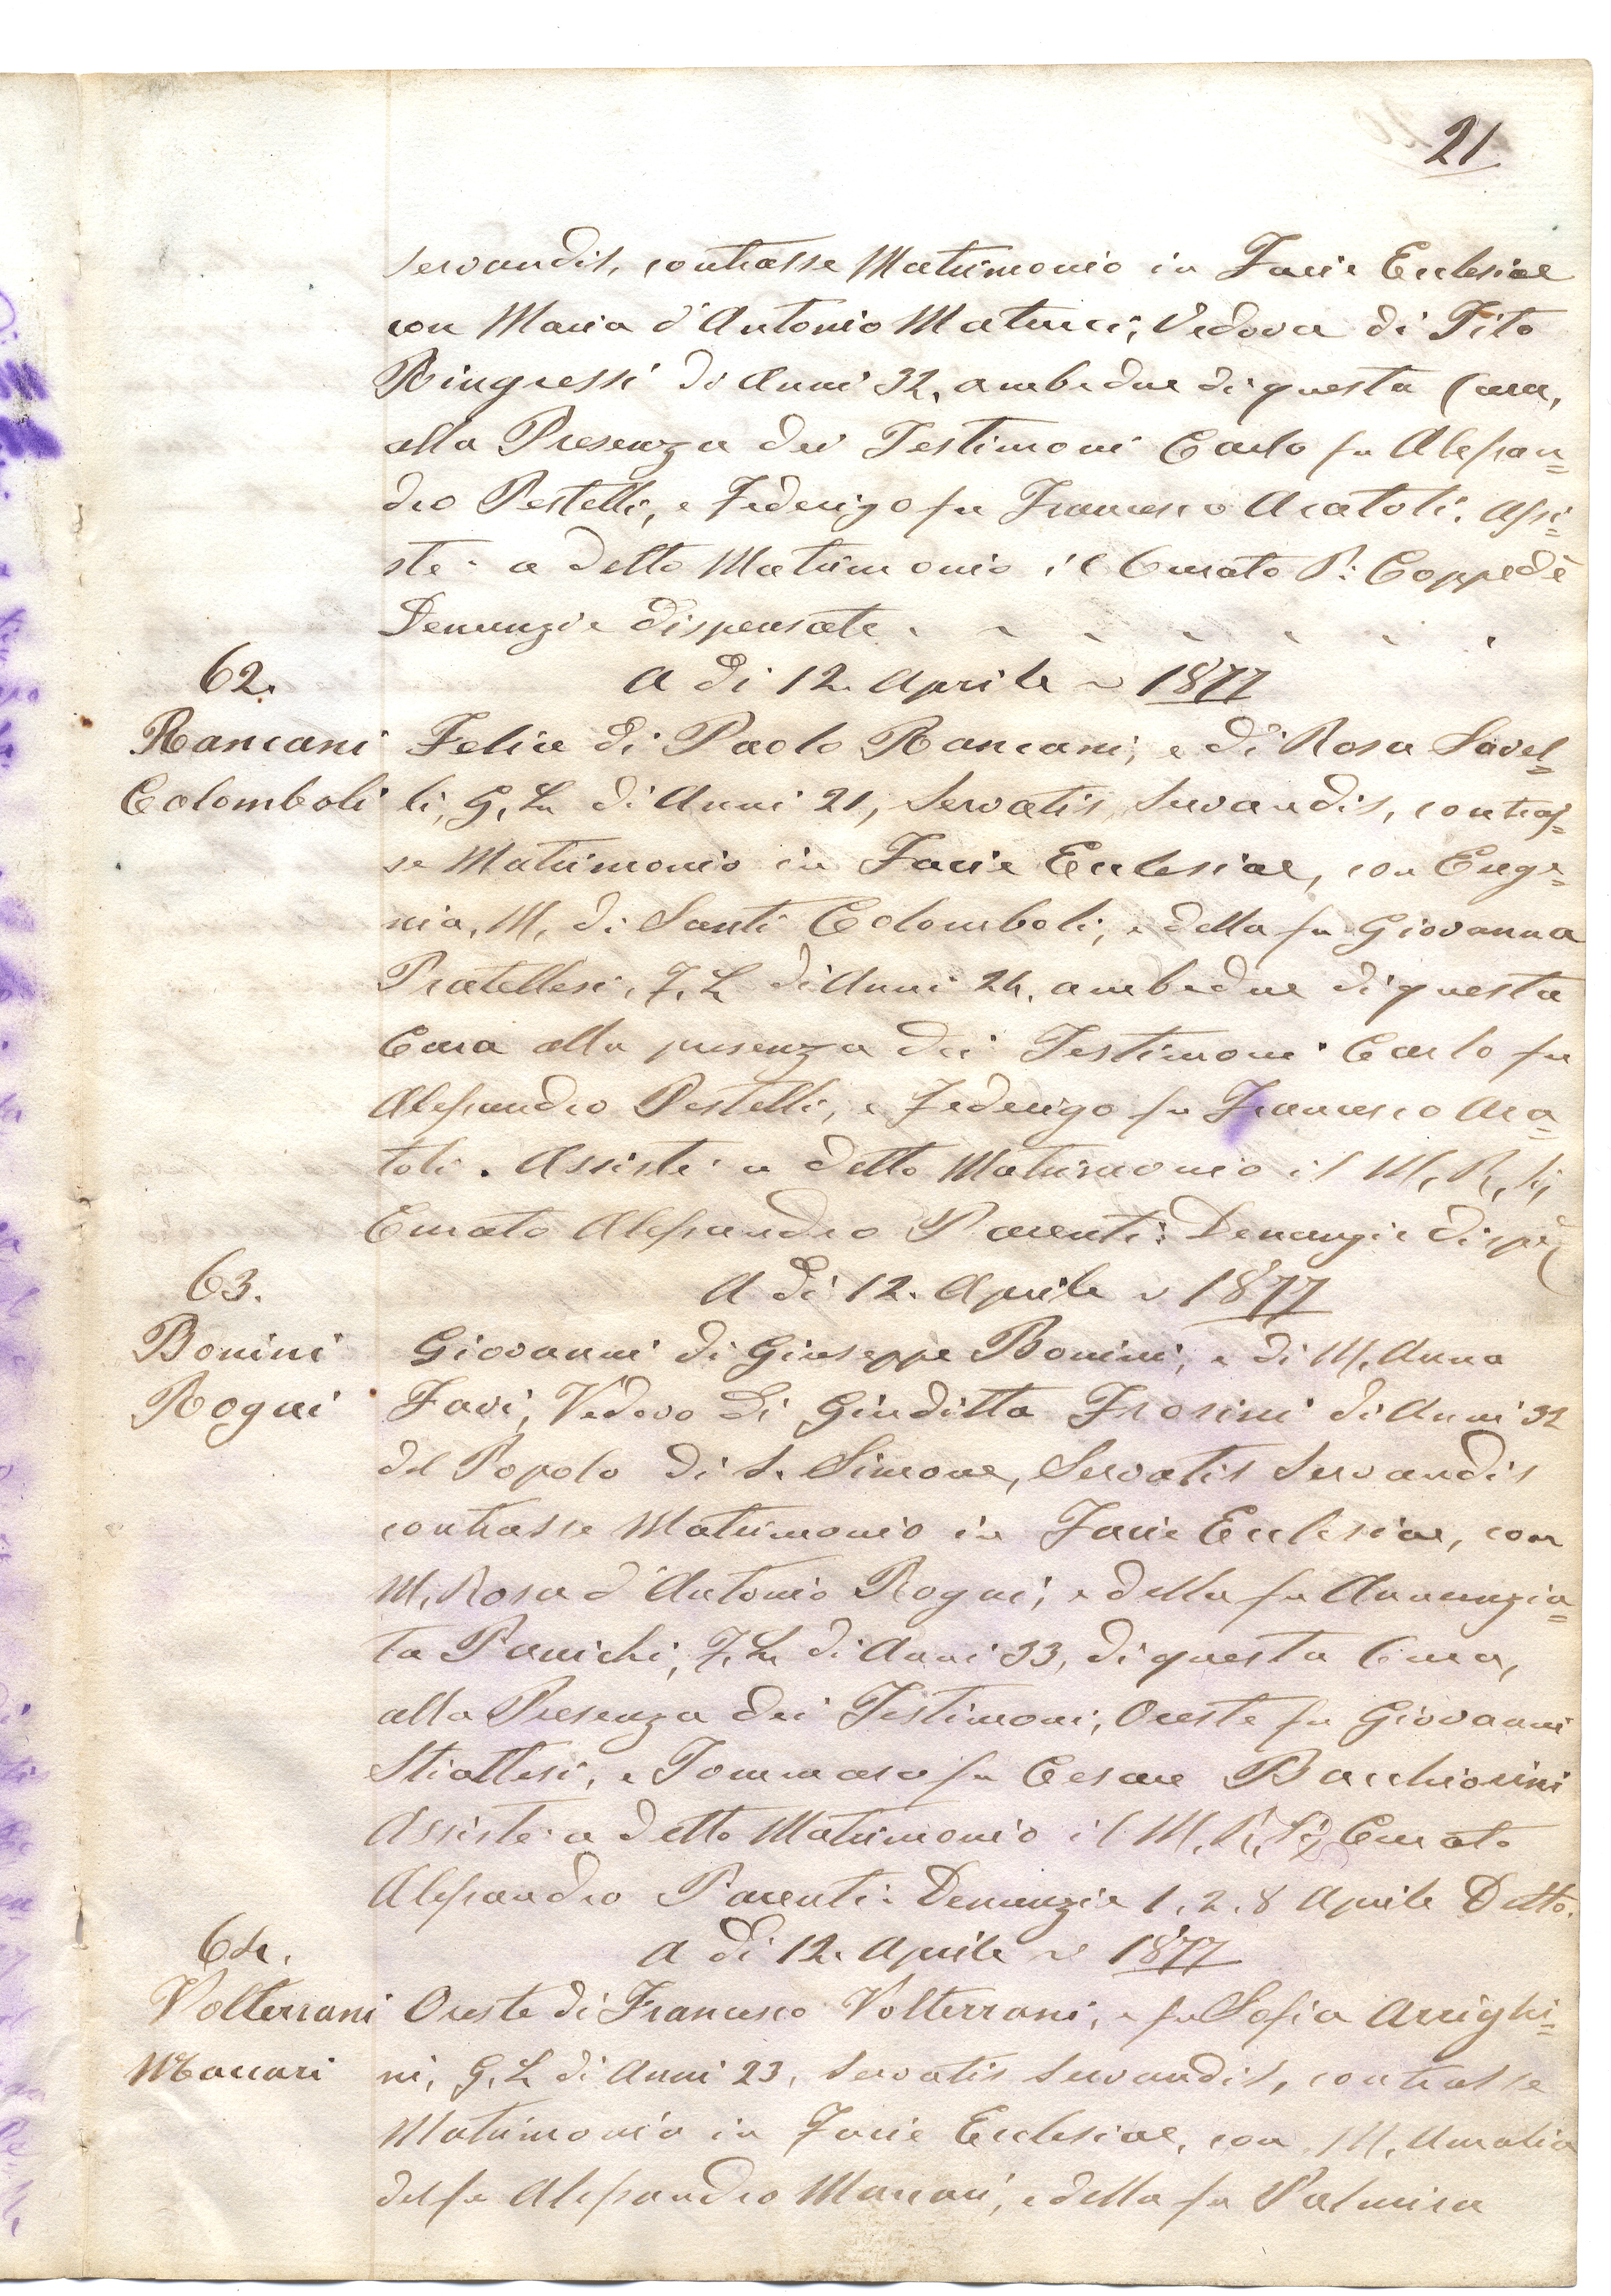 21
servandis, contrasse Matrimonio in Facie Ecclesiae
con Maria d'Antonio Matucci, Vedova di Tito
Ringressi di Anni 32, ambedue di questa Cura,
alla Presenza dei Testimoni Carlo fu Alessan=
dro Pestelli, e Federigo fu Francesco Acatoli. Assi=
stè a detto Matrimonio il Curato P: Coppedè
Denunzie dispensate
62.
A dì 12. Aprile 1877
Rancani
Colomboli
Felice di Paolo Rancani, e di Rosa Savel=
li, G. L. di Anni 21, Servatis Servandis, contras=
se Matrimonio in Facie Ecclesiae, con Euge=
nia, M. di Santi Colomboli, e della fu Giovanna
Pratellesi, F. L. di Anni 24, ambedue di questa
Cura alla presenza dei Testimoni Carlo fu
Alessandro Pestelli, e Federigo fu Francesco Aca=
toli. Assistè a detto Matrimonio il M. R. S.
Curato Alessandro Parenti: Denunzie dispe
63.
A dì 12. Aprile 1877
Bonini
Rogai
Giovanni di Giuseppe Bonini, e di M. Anna
Favi, Vedovo di Giuditta Frosini di Anni 32
del Popolo di S. Simone, Servatis Servandis
contrasse Matrimonio in Facie Ecclesiae, con
M. Rosa d'Antonio Rogai, e della fu Annunzia=
ta Panichi, F. L. di Anni 33, di questa Cura,
alla Presenza dei Testimoni, Oreste fu Giovanni
Stiattesi, e Tommaso fu Cesare Bacchiorini
Assistè a detto Matrimonio il M. R. S. Curato
Alessandro Parenti: Denunzie 1. 2. 8 Aprile Detto.
64.
A dì 12. Aprile 1877
Volterrani
Maccari
Oreste di Francesco Volterrani, e fu Sofia Arrighi=
ni, G. L. di Anni 23, Servatis Servandis, contrasse
Matrimonio in Facie Ecclesiae, con M. Amalia
del fu Alessandro Maccari, e della fu Palmira